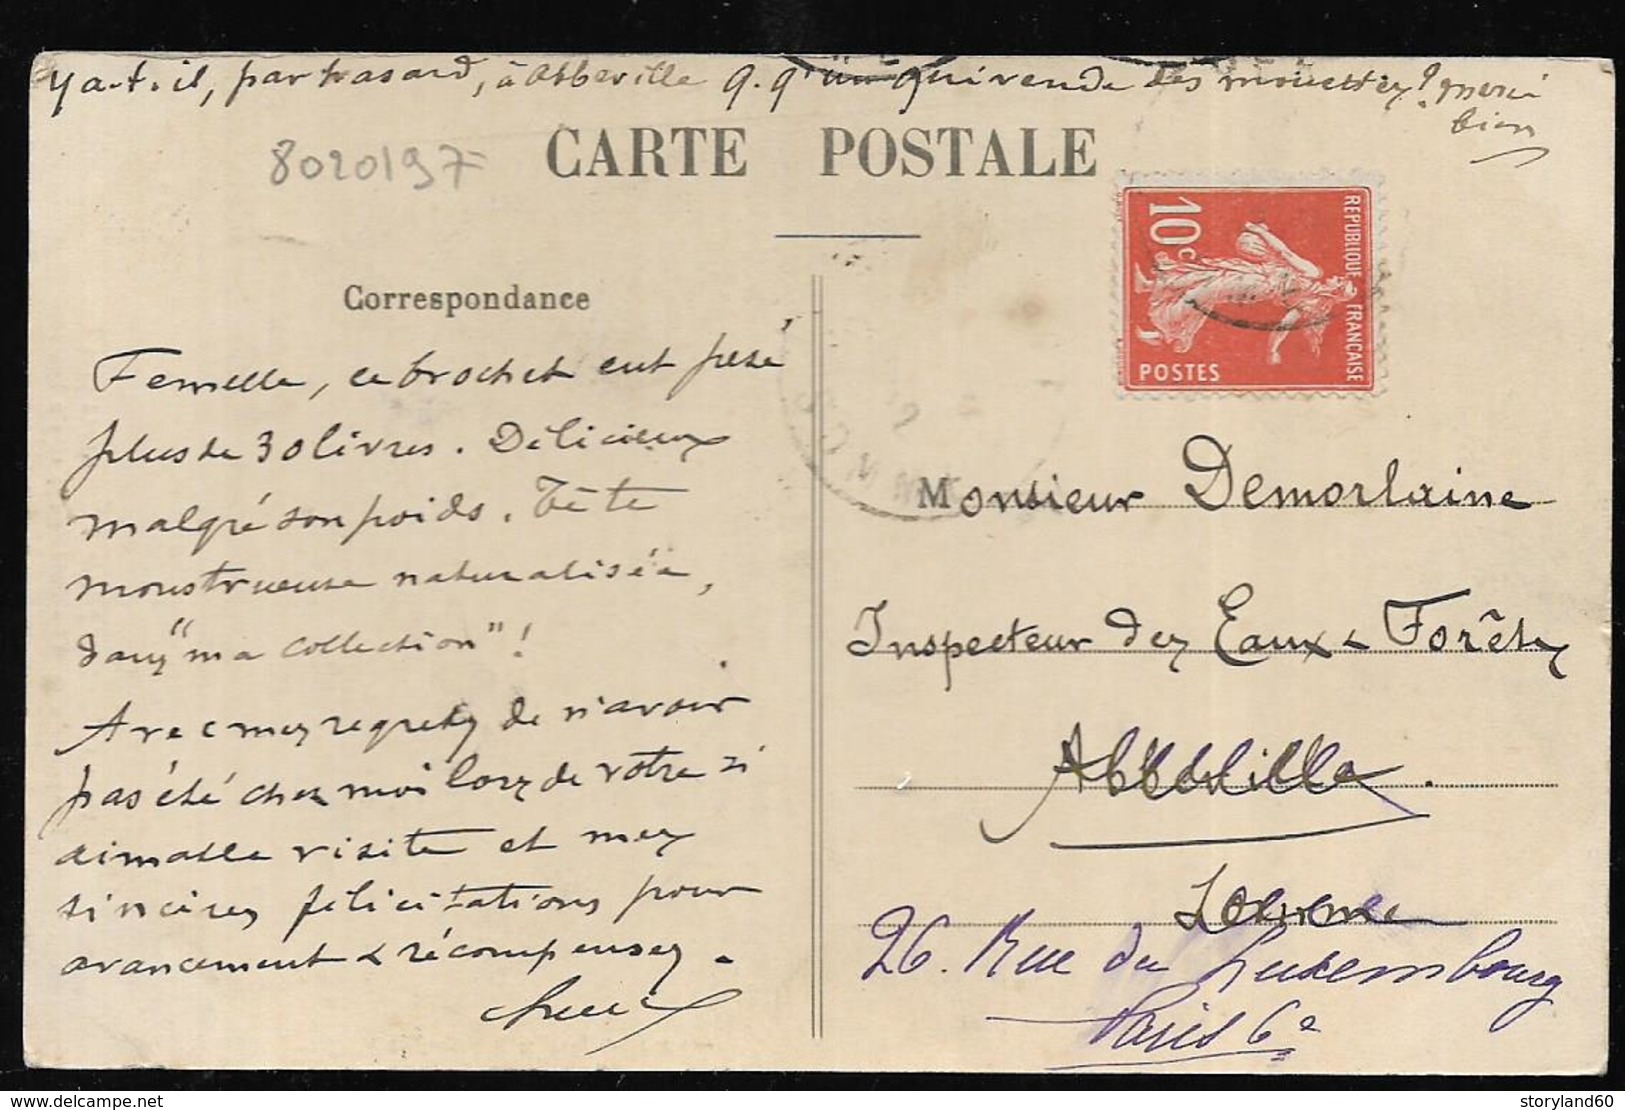 y a-t-il, par hasard, à Abbeville q.q'un qui vende des mouettes? merci
bien
8020197
CARTE POSTALE
Correspondance
Femelle, ce brochet eut pesé
plus de 30 livres. Délicieux
malgré son poids. Tête
monstrueuse naturalisée,
dans "ma collection"!
Avec mes regrets de n'avoir
pas été chez moi lors de votre si
aimable visite et mes
sincères félicitations pour
avancement & récompenses.
REPUBLIQUE FRANCAISE
10c
POSTES
SOMME
Monsieur Demorlaine
Inspecteur des Eaux & Forêts
Abbeville.
Somme
26. Rue du Luxembourg
Paris 6e
delcampe.net
storyland60